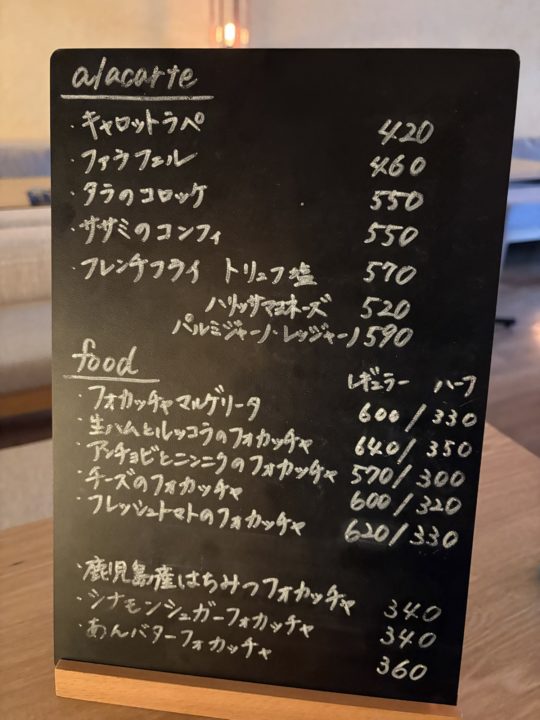 alacarte
・キャロットラペ 420
・ファラフェル 460
・タラのコロッケ 550
・ササミのコンフィ 550
・フレンチフライ トリュフ塩 570
ハリッサマヨネーズ 520
パルミジャーノ・レッジャーノ 590
food レギュラー ハーフ
・フォカッチャマルゲリータ 600/330
・生ハムとルッコラのフォカッチャ 640/350
・アンチョビとニンニクのフォカッチャ 570/300
・チーズのフォカッチャ 600/320
・フレッシュトマトのフォカッチャ 620/330
・鹿児島産はちみつフォカッチャ 340
・シナモンシュガーフォカッチャ 340
・あんバターフォカッチャ 360